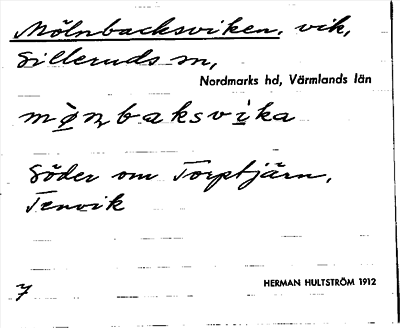 Mölnbacksviken, vik,
Silleruds sn,
Nordmarks hd, Värmlands län
Söder om Torptjärn,
7
HERMAN HULTSTRÖM 1912